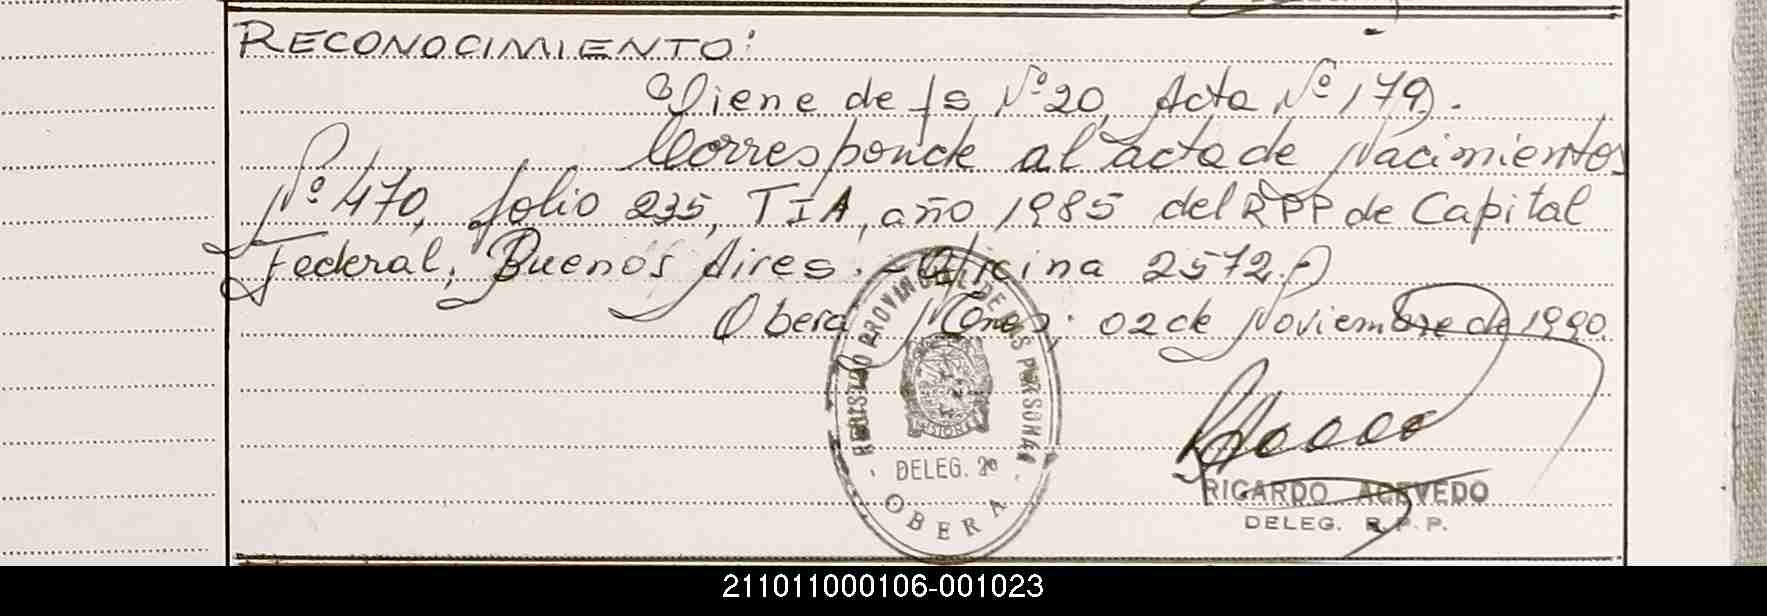 RECONOCIMIENTO:
Viene de fs Nº 20, Acta Nº 179.
Corresponde al acta de Nacimientos
Nº 470, folio 235, TIA, año 1985 del RPP de Capital
Federal, Buenos Aires.- Oficina 2572.
Oberá, Mnes, 02 de Noviembre de 1990.
REGISTRO PROVINCIAL DE LAS PERSONAS
MISIONES
DELEG. 2º
OBERA
RICARDO ACEVEDO
DELEG. R.P.P.
211011000106-001023